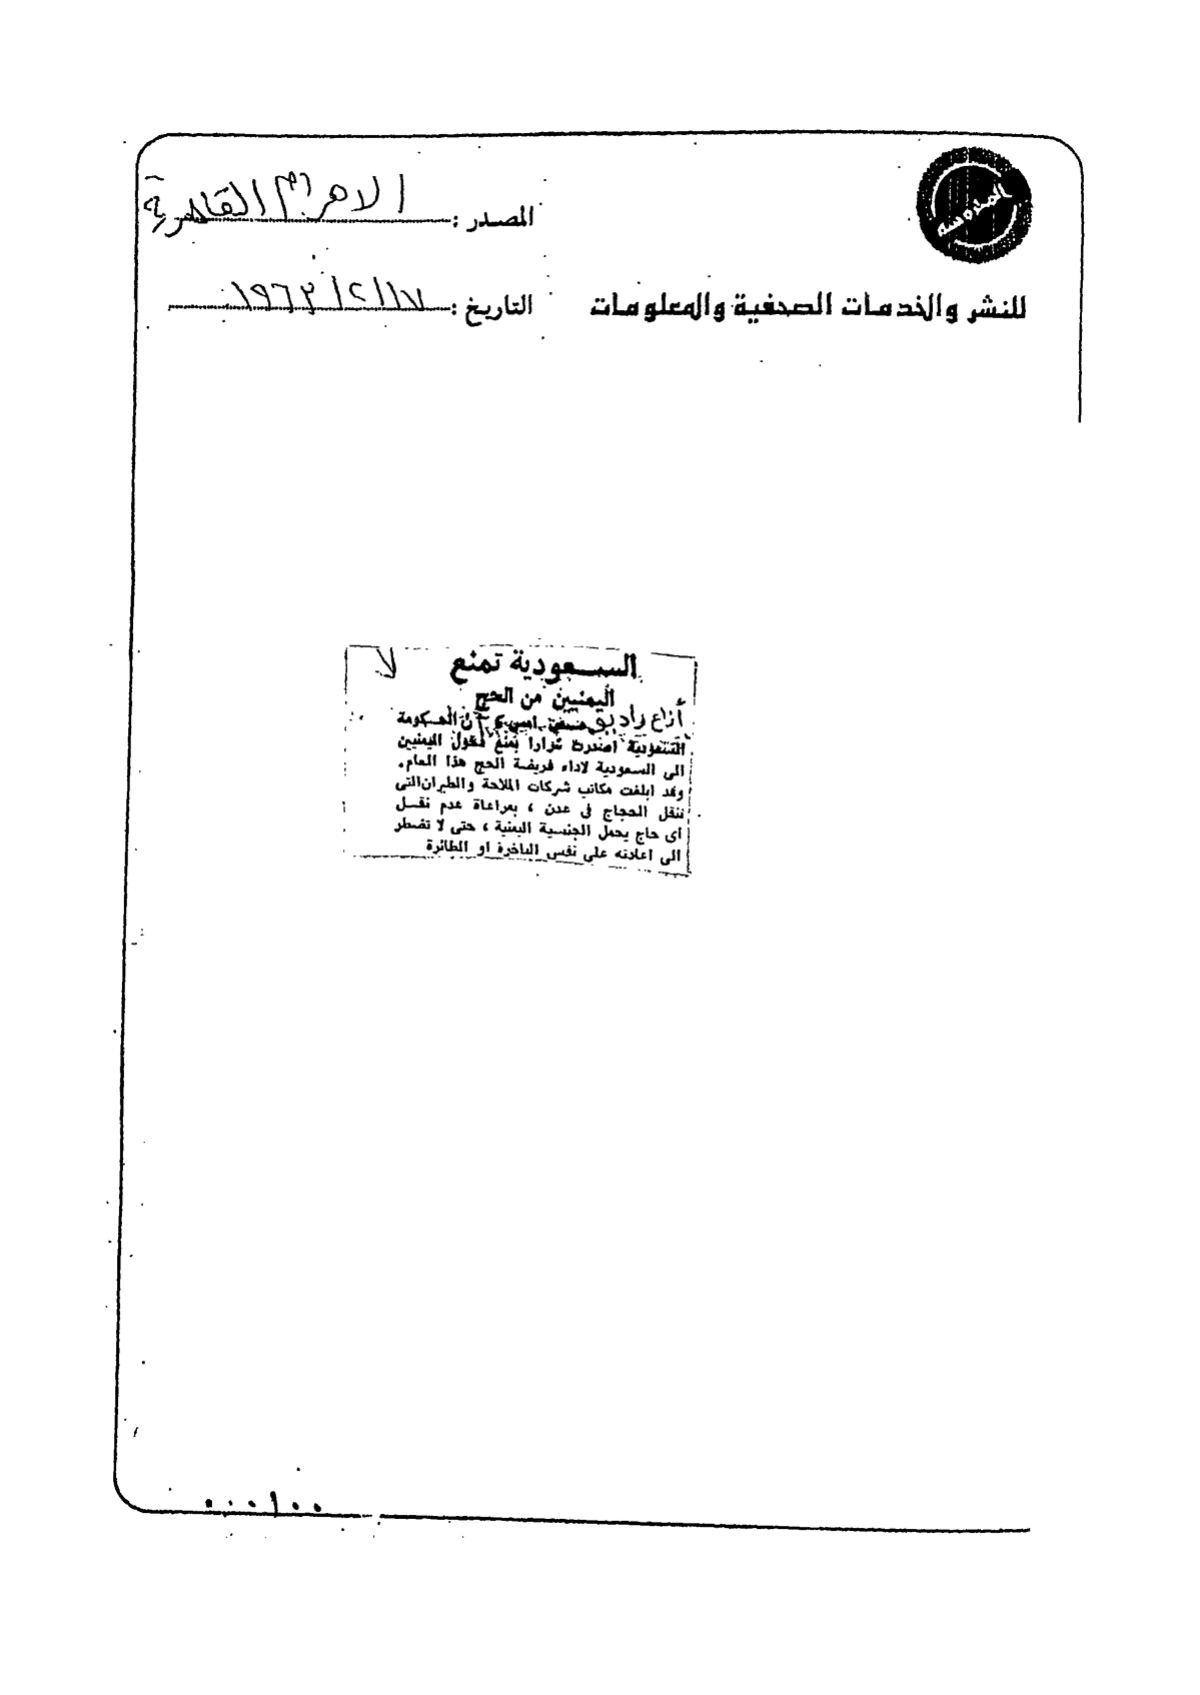 المدوسه
المصدر : الاهرام القاهرية
للنشر والخدمات الصحفية والمعلومات
التاريخ : ١٧/٢/١٩٦٣
لا
السعودية تمنع
اليمنيين من الحج
أذاع راديو دمشق امس ، أن الحكومة
السعودية اصدرت قرارا بمنع دخول اليمنيين
الى السعودية لاداء فريضة الحج هذا العام .
وقد ابلغت مكاتب شركات الملاحة والطيران التى
تنقل الحجاج فى عدن ، بمراعاة عدم نقل
أى حاج يحمل الجنسية اليمنية ، حتى لا تضطر
الى اعادته على نفس الباخرة او الطائرة